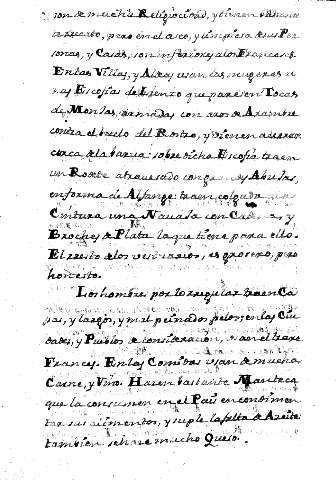 son de mucha Religiosidad, y tienen
aspecto, pero en el aseo, y limpieza de sus Per
sonas, y Casas, son inferiores a los Franceses.
En las Villas, y Aldeas usan las mugeres u
nas Escofias de Lienzo que parecen Tocas
de Monjas, armadas con aros de Arambre
contra el buelo del Rostro, y vienen a cerrar
cerca de la barva: sobre dicha Escofia traen
un Rodete atravesado con Abujas,
en forma de Alfange: traen colgada
Cintura una Navaja con Cadena, y
Broches de Plata la que tiene para ello.
El resto de los vestuarios, es grosero, pero
honesto.
Los hombres por lo regular traen Ca
pas, y largos, y mal peinados pelos; en las Ciu
dades, y Pueblos de consideracion, usan el traxe
Frances. En las Comidas usan de mucha
Carne, y Vino. Hacen bastante Manteca
que la consumen en el País en condimen
tar sus alimentos, y suple la falta de Azeite
tambien se hace mucho Queso.